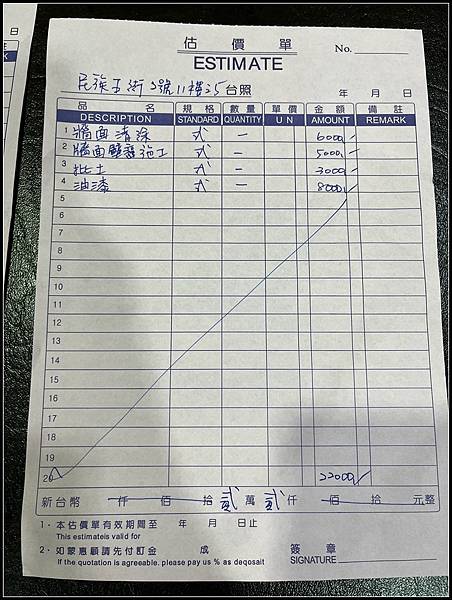 日
估 價 單
ESTIMATE
No.
台照
年 月 日
品 名 規 格 數 量 單 價 金 額 備 註
DESCRIPTION STANDARD QUANTITY U N AMOUNT REMARK
1 牆面清除 式 一 6000
2 牆面 施工 式 一 5000
3 批土 式 一 3000
4 油漆 式 一 8000
5
6
7
8
9
10
11
12
13
14
15
16
17
18
19
20 22000
新台幣 仟 佰 拾 貳 萬 貳 仟 佰 拾 元整
1．本估價單有效期間至 年 月 日止
This estimateis valid for
2．如蒙惠顧請先付訂金 成 簽 章
If the quotation is agreeable. please pay us % as deqosait SIGNATURE